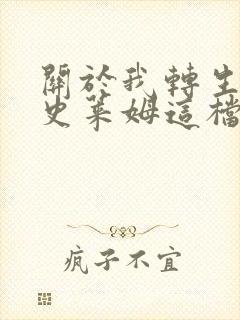 關於我轉生
史萊姆這檔
疯子不宜